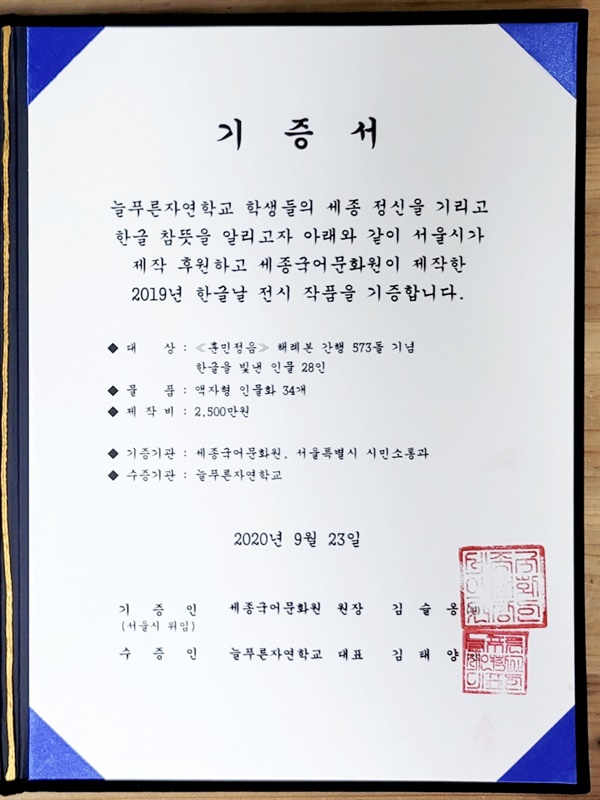 기 증 서
늘푸른자연학교 학생들의 세종 정신을 기리고
한글 참뜻을 알리고자 아래와 같이 서울시가
제작 후원하고 세종국어문화원이 제작한
2019년 한글날 전시 작품을 기증합니다.
◆ 대 상 : ≪훈민정음≫ 해례본 간행 573돌 기념
한글을 빛낸 인물 28인
◆ 물 품 : 액자형 인물화 34개
◆ 제 작 비 : 2,500만원
◆ 기증기관 : 세종국어문화원, 서울특별시 시민소통과
◆ 수증기관 : 늘푸른자연학교
2020년 9월 23일
기 증 인 세종국어문화원 원장 김 슬 옹
(서울시 위임)
수 증 인 늘푸른자연학교 대표 김 태 양